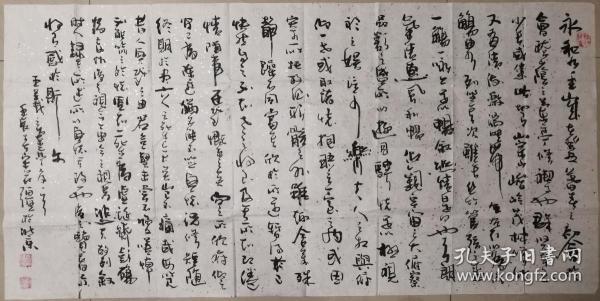 永和九年歲在癸丑暮春之初
會於會稽山陰之蘭亭修禊事也群賢畢至
少長咸集此地有崇山峻嶺茂林修竹
又有清流激湍映帶左右引以為流
觴曲水列坐其次雖無絲竹管弦之盛
一觴一詠亦足以暢敘幽情是日也天朗
氣清惠風和暢仰觀宇宙之大俯察
品類之盛所以遊目騁懷足以極視
聽之娛信可樂也夫人之相與俯
仰一世或取諸懷抱晤言一室之內或因
寄所託放浪形骸之外雖趣舍萬殊
靜躁不同當其欣於所遇暫得於己
快然自足不知老之將至及其所之既倦
情隨事遷感慨係之矣向之所欣俯仰之
間已為陳跡猶不能不以之興懷況修短隨化
終期於盡古人云死生亦大矣豈不痛哉每覽
昔人興感之由若合一契未嘗不臨文嗟悼
不能喻之於懷固知一死生為虛誕齊彭殤
為妄作後之視今亦猶今之視昔悲夫故列敘
時人錄其所述所以興懷其致一也後之覽者亦將
有感於斯文
王羲之蘭亭序
孔夫子旧书网